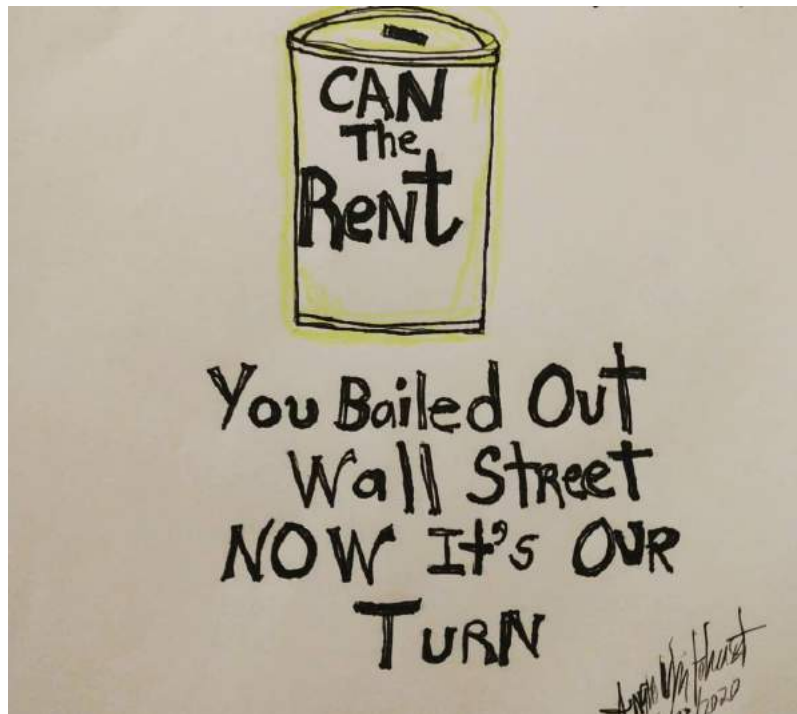 CAN
The
Rent
You Bailed Out
Wall Street
NOW It's OUR
TURN